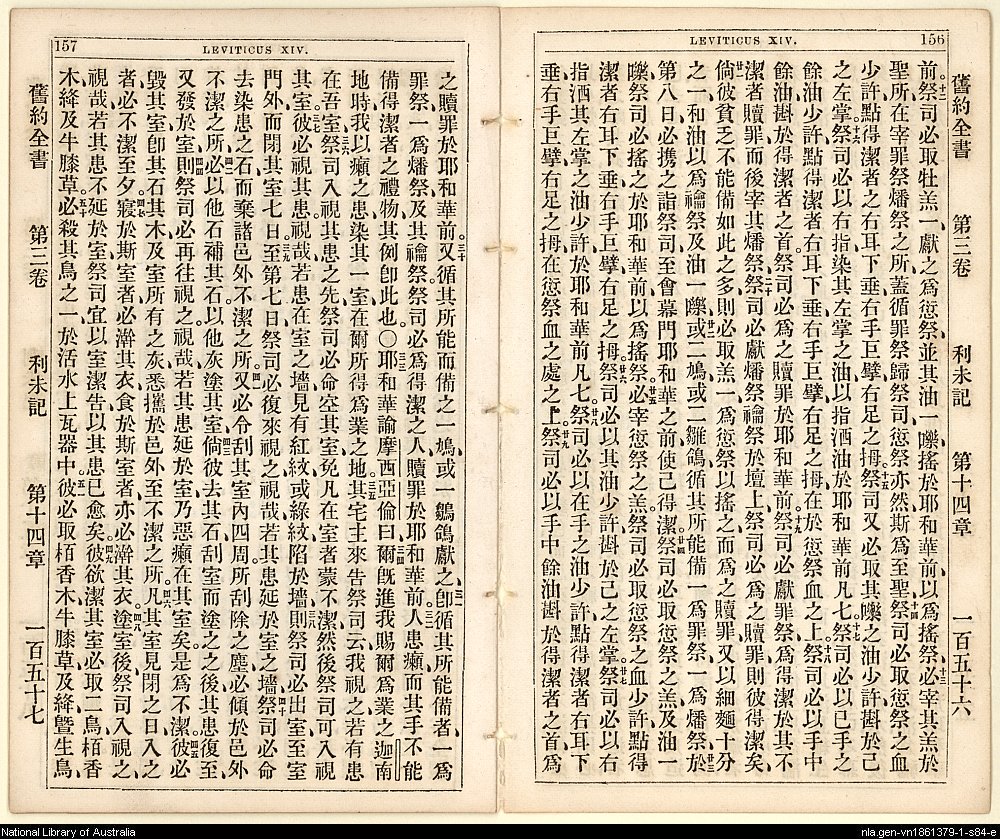 LEVITICUS XIV. 156
舊約全書 第三卷 利未記 第十四章 一百五十六
前。十二祭司必取牡羔一、獻之爲愆祭、並其油一㗶、搖於耶和華前、以爲搖祭、十三必宰其羔於
聖所、在宰罪祭燔祭之所、蓋循罪祭歸祭司、愆祭亦然、斯爲至聖、十四祭司必取愆祭之血
少許、點得潔者之右耳下垂、右手巨擘、右足之拇、十五祭司又必取其㗶之油少許、斟於己
之左掌、十六祭司必以右指染其左掌之油、以指洒油於耶和華前凡七、十七祭司必以已手之
餘油少許、點得潔者右耳下垂、右手巨擘、右足之拇、在於愆祭血之上、十八祭司必以手中
餘油、斟於得潔者之首、祭司必爲之贖罪於耶和華前、十九祭司必獻罪祭、爲得潔於其不
潔者贖罪、而後宰其燔祭、二十祭司必獻燔祭禴祭於壇上、祭司必爲之贖罪、則彼得潔矣、
廿一倘彼貧乏不能備如此之多、則必取羔一爲愆祭以搖之、而爲之贖罪、又以細麵十分
之一和油以爲禴祭、及油一㗶、廿二或二鳩、或二雛鴿、循其所能備、一爲罪祭、一爲燔祭、廿三於
第八日必携之詣祭司、至會幕門、耶和華之前、使己得潔、廿四祭司必取愆祭之羔、及油一
㗶、祭司必搖之於耶和華前、以爲搖祭。廿五必宰愆祭之羔、祭司必取愆祭之血少許、點得
潔者右耳下垂、右手巨擘、右足之拇。廿六祭司必以其油少許、斟於己之左掌、廿七祭司必以右
指洒其左掌之油少許、於耶和華前凡七。廿八祭司必以在手之油少許、點得潔者右耳下
垂、右手巨擘、右足之拇、在愆祭血之處之上、廿九祭司必以手中餘油、斟於得潔者之首、爲
157 LEVITICUS XIV.
之贖罪於耶和華前、三十又循其所能而備之一鳩、或一鶵鴿獻之、三一卽循其所能備者、一爲
罪祭、一爲燔祭、及其禴祭、祭司必爲得潔之人、贖罪於耶和華前。三二人患癩、而其手不能
備得潔者之禮物、其例卽此也。〇三三耶和華諭摩西亞倫曰、三四爾旣進我賜爾爲業之迦南
地時、我以癩之患染其一室、在爾所得爲業之地、三五其宅主來告祭司云、我視之若有患
在吾室、三六祭司入視其患之先、祭司必命空其室、免凡在室者蒙不潔、然後祭司可入視
其室。三七彼必視其患、視哉、若患在室之墻、見有紅紋、或綠紋陷於墻、三八則祭司必出室、至室
門外、而閉其室七日、三九至第七日、祭司必復來視之、視哉、若其患延於室之墻、四十祭司必命
去染患之石、而棄諸邑外不潔之所、四一又必令刮其室內四周、所刮除之塵、必傾於邑外
不潔之所、四二必以他石補其石、以他灰塗其室、四三倘彼去其石、刮室而塗之之後、其患復至、
又發於室、四四則祭司必再往視之、視哉、若其患延於室、乃惡癩在其室矣、是爲不潔、四五彼必
毀其室、卽其石、其木、及室所有之灰、悉攜於邑外、至不潔之所、四六凡其室見閉之日、入之
者必不潔至夕、四七寢於斯室者、必澣其衣、食於斯室者、亦必澣其衣、四八塗室後、祭司入視之、
視哉、若其患不延於室、祭司宜以室潔告、以其患已愈矣、四九彼欲潔其室、必取二鳥、栢香
木、絳、及牛膝草、五十必殺其鳥之一、於活水上、瓦器中、五一彼必取栢香木、牛膝草、及絳、曁生鳥、
舊約全書 第三卷 利未記 第十四章 一百五十七
National Library of Australia
nla.gen-vn1861379-1-s84-e